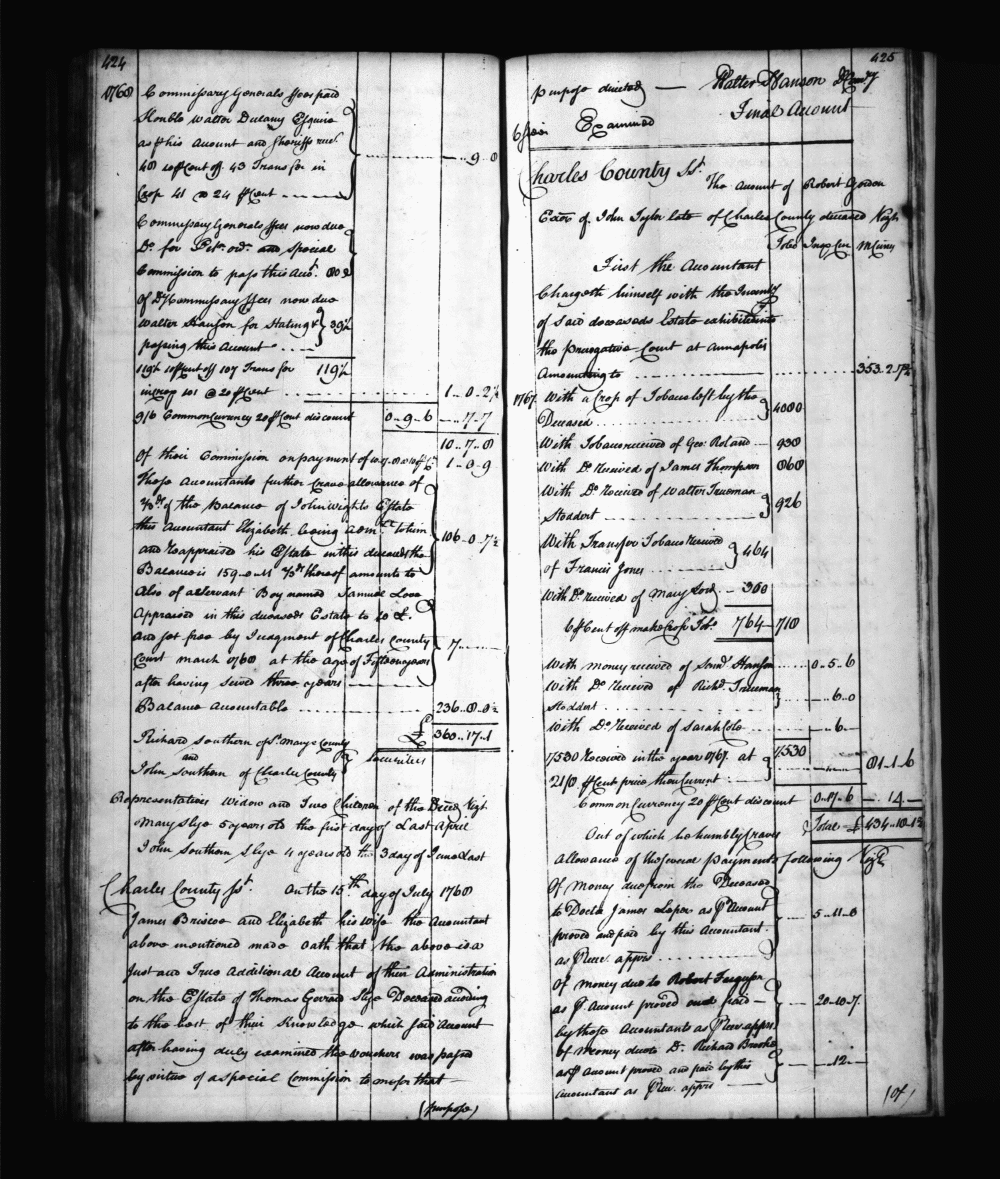 424
1768 Commissary Generals ffees paid
Honble Walter Dulany Esquire
as ⅌ his Account and Sheriffs rect.
48 10 ⅌ Cent off 43 Transfer in
Crop 41 @ 24 ⅌ Cent ........ 9..8
Commissary Generals ffees now due
Do. for and Special
Commission to pass this Acct. 80
Of Dy Commissary ffees now due
Walter Hanson for Stating &
passing this Account .... 39½
119½ 10 ⅌ Cent off 107 Trans for 119½
in Crop 101 @ 20 ⅌ Cent ........ 1..0..2½
9/6 Common Currency 20 ⅌ Cent discount 0..9..6 ...7..7
10..7..8
Of their Commission on payment of 10..7..8 @ 10 ⅌ Ct. 1..0..9
These Accountants further Crave allowance of
⅔ds of the Balance of John Wights Estate
this Accountant Elizabeth being Admx. to him
and Reappraised his Estate in this deceaseds the
Balance is 159..0..11 ⅔ds thereof amounts to 106..0..7½
Also of a Servant Boy named Samuel Love
Appraised in this deceaseds Estate to 10 £.
and set free by Judgment of Charles County
Court March 1768 at the Age of Fifteen years
after having served three years 7......
Balance Accountable 236..8..0½
£ 360..17..1
Richard Southern of St. Marys County
and
John Southern of Charles County
Securities
Representatives Widow and Two Children of the Deced. Vizt.
Mary Slye 5 years old the first day of Last April
John Southern Slye 4 years old the 3 day of June Last
Charles County Sst. On the 15th day of July 1768
James Briscoe and Elizabeth his Wife the Accountant
above mentioned made Oath that the above is a
Just and True Additional Account of their Administration
on the Estate of Thomas Gerrard Slye Deceased according
to the best of their Knowledge which said Account
after having duly examined the vouchers was passed
by virtue of a special Commission to me for that
(purpose)
425
purpose directed — Walter Hanson Dy Comry
Final Account
Examined
Charles County Sst.
The Account of Robert Gordon
Exor of John Tyler late of Charles County deceased Vizt.
Tobo. Money
First the Accountant
Chargeth himself with the Inventy
of said deceaseds Estate exhibited into
the Prerogative Court at Annapolis
Amounting to ........ 353..2..7½
1767. With a Crop of Tobacco left by the
Deceased ........ 4080
With Tobacco received of Geo: Roland 930
With Do. Received of James Thompson 860
With Do. Received of Walter Trueman
Stoddert ........ 926
With Transfer Tobacco Received
of Francis Jones ........ 464
With Do. received of Mary Lord 300
6 ⅌ Cent off make Crop Tobo. 764 718
With money received of Saml. Hanson ....0..5..6
With Do. Received of Richd. Trueman
Stoddert ........ 6..0
With Do. Received of Sarah Cole ........ 6..
7,530 Received in the year 1767. at 7,530
21/8 ⅌ Cent price then Current 81..1..6
Common Currency 20 ⅌ Cent discount 0..17..6 ..14..
Total £ 434..18..1½
Out of which he humbly Craves
Allowance of the several payments following Vizt.
Of Money due from the Deceased
to Doctr. James Loper as ⅌ Account
proved and paid by this Accountant
as ⅌ rect. apprs ........ 5..11..8
Of Money due to Robert Ferguson
as ⅌ Account proved and paid
by these Accountants as ⅌ rect. apprs. 20..10..7.
Of Money due to Dr. Richard Brooke
as ⅌ Account proved and paid by this
accountant as ⅌ rect. apprs ....12..
(Of)